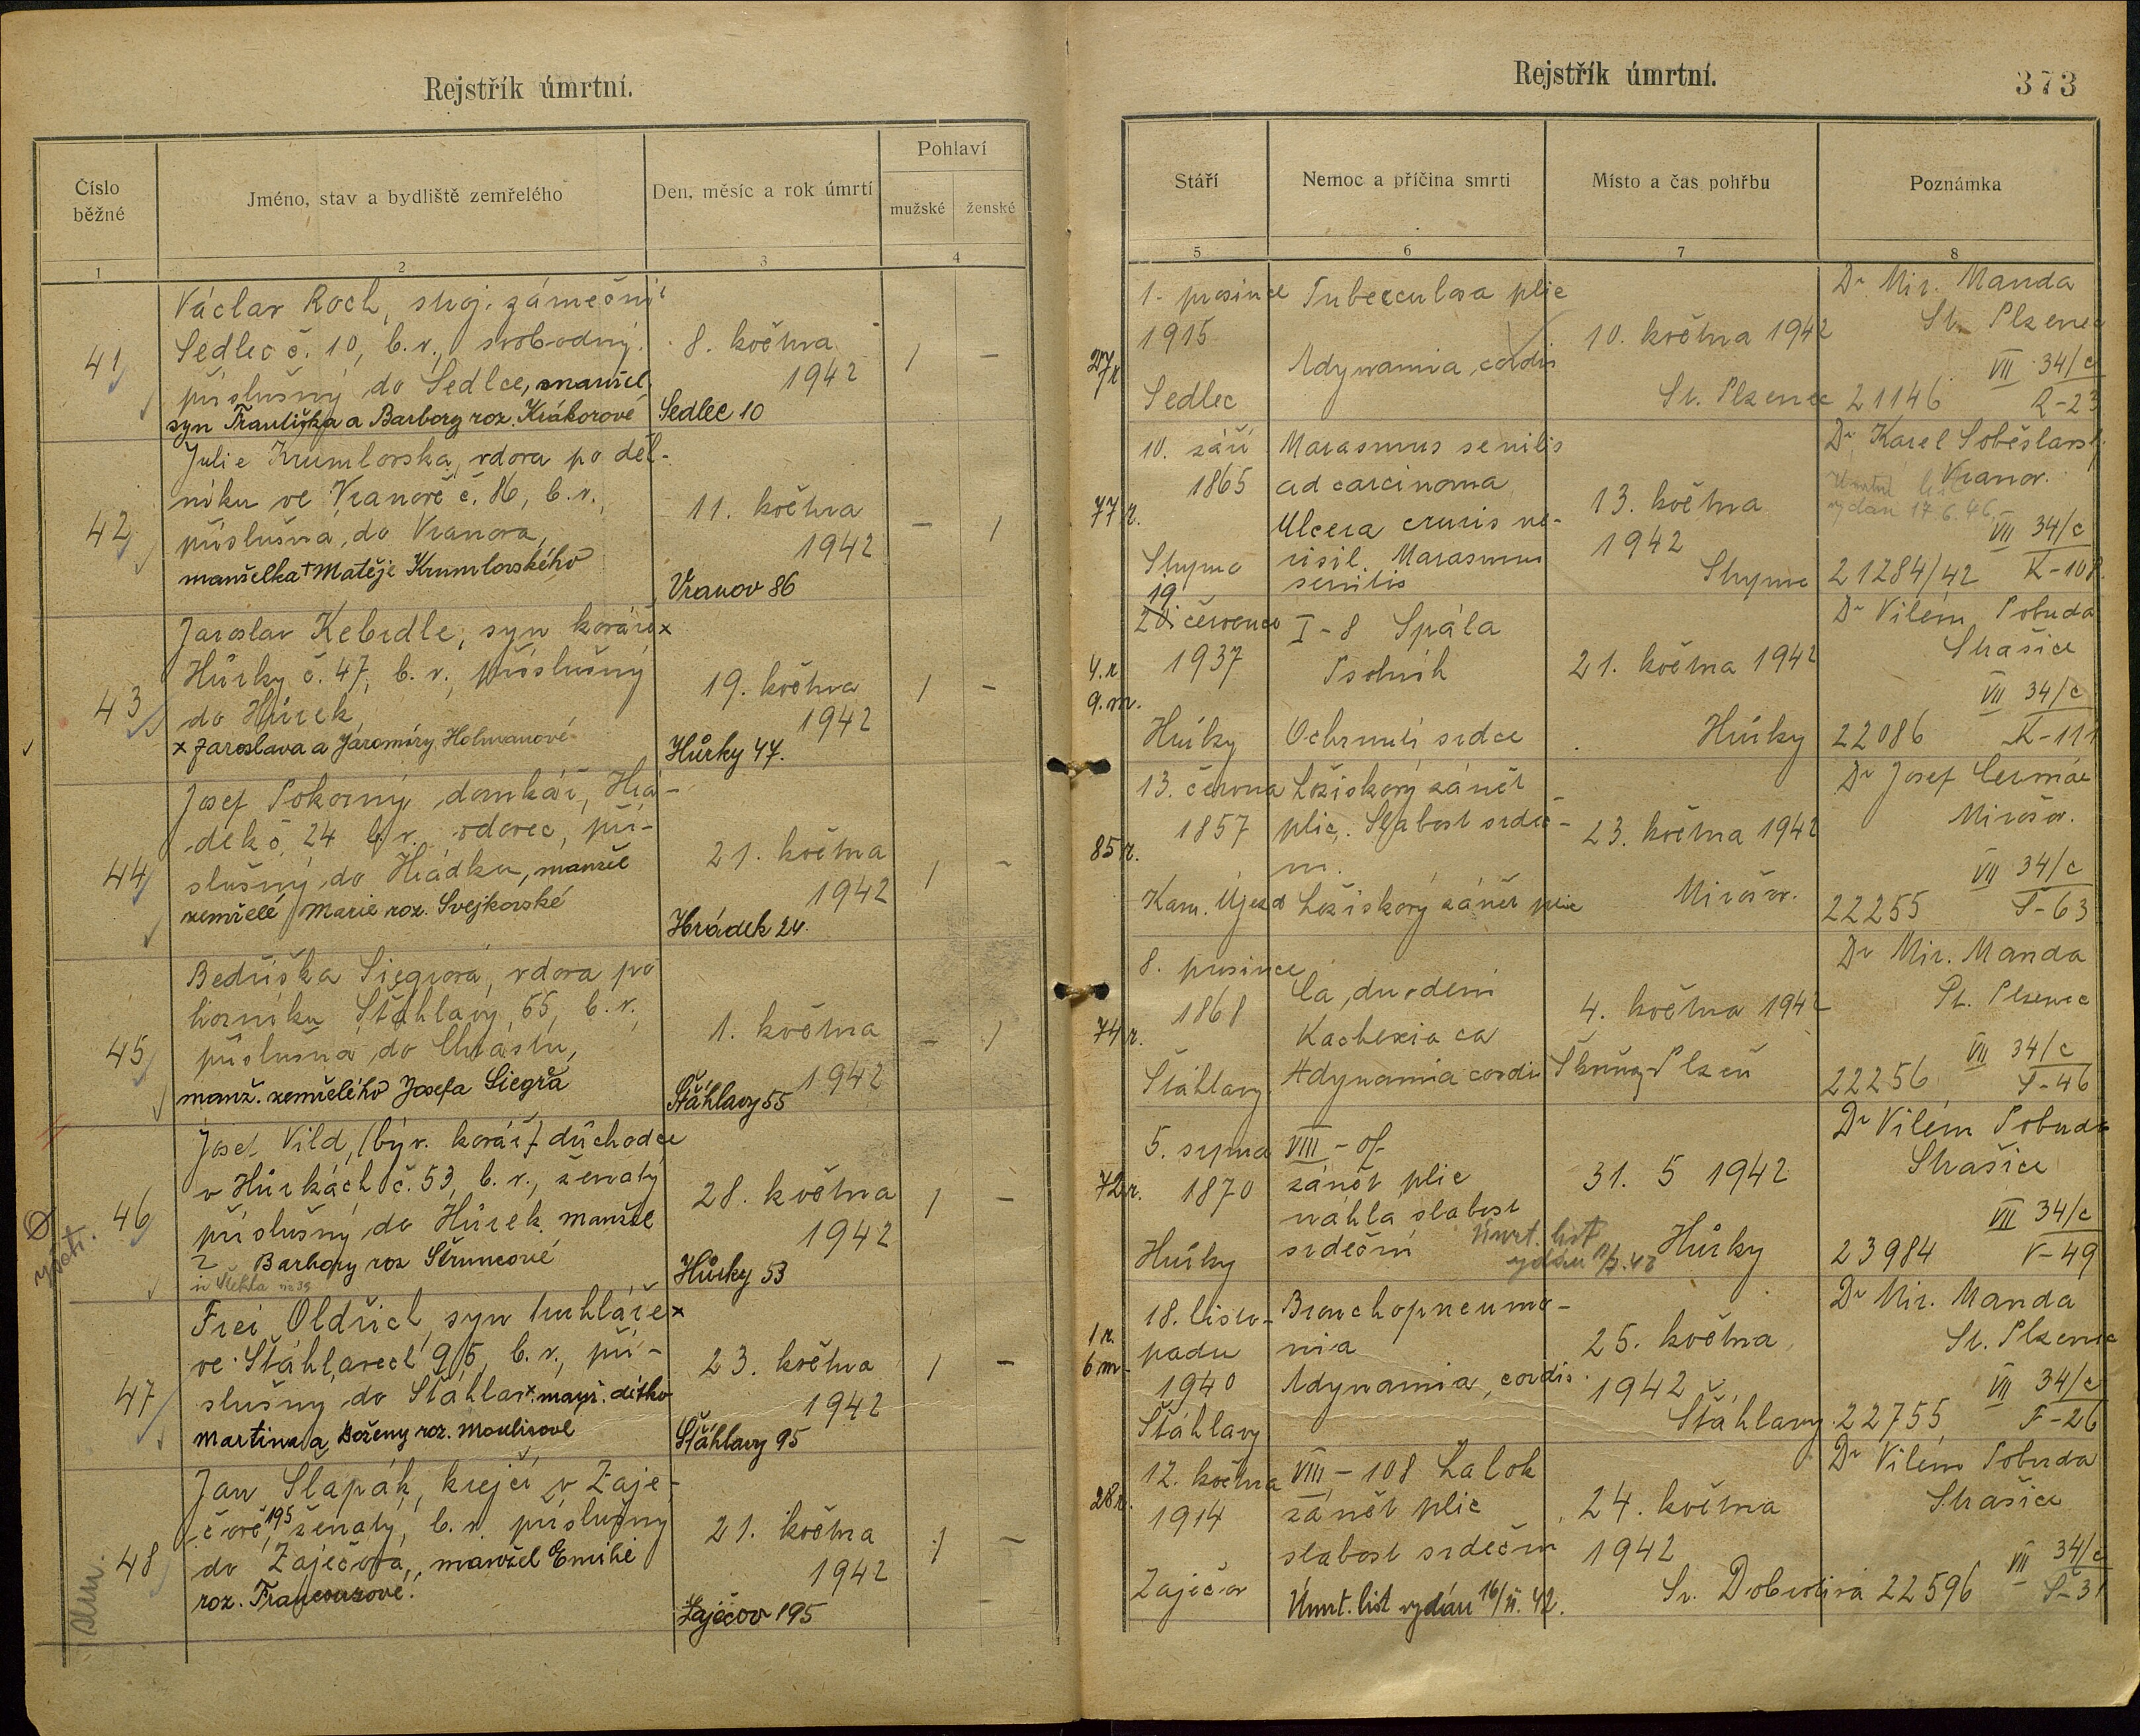 Rejstřík úmrtní.
Číslo běžné
Jméno, stav a bydliště zemřelého
Den, měsíc a rok úmrtí
Pohlaví
mužské
ženské
1
2
3
4
41
Václav Roch, stroj. zámečník
Sedlec č. 10, b. v., svobodný.
příslušný do Sedlce, manžel.
syn Františka a Barbory roz. Kráborové
8. května
1942
Sedlec 10
1
-
42
Julie Krumlovská, vdova po děl-
níku ve Vranově č. 86, b. v.,
příslušná do Vranova,
manželka † Matěje Krumlovského
11. května
1942
Vranov 86
-
1
43
Jaroslav Kebrdle, syn kováře x
Hůrky č. 47, b. v., příslušný
do Hůrek,
x Jaroslava a Jaromíry Holmanové
19. května
1942
Hůrky 47.
1
-
44
Josef Pokorný domkář, Hrá-
dek č. 24 b. v., vdovec, pří-
slušný do Hrádku, manžel
zemřelé Marie roz. Svejkovské
21. května
1942
Hrádek 24.
1
-
45
Bedřiška Siegrová, vdova po
horníku Šťáhlavy, 55, b. v.
příslušná do Chrástu,
manž. zemřelého Josefa Siegra
1. května
1942
Šťáhlavy 55
-
1
46
Josef Vild, (býv. kovář) důchodce
v Hůrkách č. 53, b. v., ženatý
příslušný do Hůrek. manžel
Barbory roz Štruncové
28. května
1942
Hůrky 53
1
-
47
Frei Oldřich, syn truhláře x
ve Šťáhlavech 95, b. v., pří-
slušný do Šťáhlav x. manž. dítko
Martina a Boženy roz. Moulisové
23. května
1942
Šťáhlavy 95
1
-
48
Jan Slapák, krejčí v Zaje-
čově, 195 ženatý, b. v. příslušný
do Zaječova, manžel Emilie
roz. Francouzové.
21. května
1942
Zaječov 195
1
-
Rejstřík úmrtní.
373
Stáří
Nemoc a příčina smrti
Místo a čas pohřbu
Poznámka
5
6
7
8
1. prosince
1915
Sedlec
27 r.
Tuberculosa plic
Adynamia cordis
10. května 1942
St. Plzenec
Dr Mir. Manda
St. Plzenec
VII 34/c
21146 R-23
77 r.
10. září
1865
Marasmus senilis
ad carcinoma
Ulcera cruris
Marasmus
senilis
13. května
1942
Dr Karel Soběslavsk
Vranov.
vydán 17.6.46
VII 34/c
21284/42 K-108
4. r.
9. m.
19
20. července
1937
Hůrky
I-8 Spála
Psotník
Ochrnutí srdce
21. května 1942
Hůrky
Dr Vilém Pobuda
Strašice
VII 34/c
22086 K-111
85 r.
13. června
1857
Kam. Újezd
Ložiskový zánět
plic, Slabost srdeč-
Ložiskový zánět plic
23. května 1942
Mirošov.
Dr Josef Čermák
Mirošov.
VII 34/c
22255 P-63
74 r.
8. prosince
1868
Šťáhlavy
Ca duodeni
Kachexia ca
Adynamia cordis
4. května 1942
Plzeň
Dr Mir. Manda
St. Plzenec
VII 34/c
22256 S-46
72 r.
5. srpna
1870
Hůrky
VIII-of
zánět plic
náhlá slabost
srdeční
Úmrt. list
31. 5 1942
Hůrky
Dr Vilém Pobuda
Strašice
VII 34/c
23984 V-49
1 r.
6 m.
18. listo-
padu
1940
Šťáhlavy
Bronchopneumo-
nia
Adynamia cordis
25. května
1942
Šťáhlavy
Dr Mir. Manda
St. Plzenec
VII 34/c
22755 F-26
28 r.
12. května
1914
Zaječov
VIII-108 Lalok
zánět plic
slabost srdeční
Úmrt. list vydán 16/VI. 42.
24. května
1942
Sv. Dobrotivá
Dr Vilém Pobuda
Strašice
VII 34/c
22596 S-31